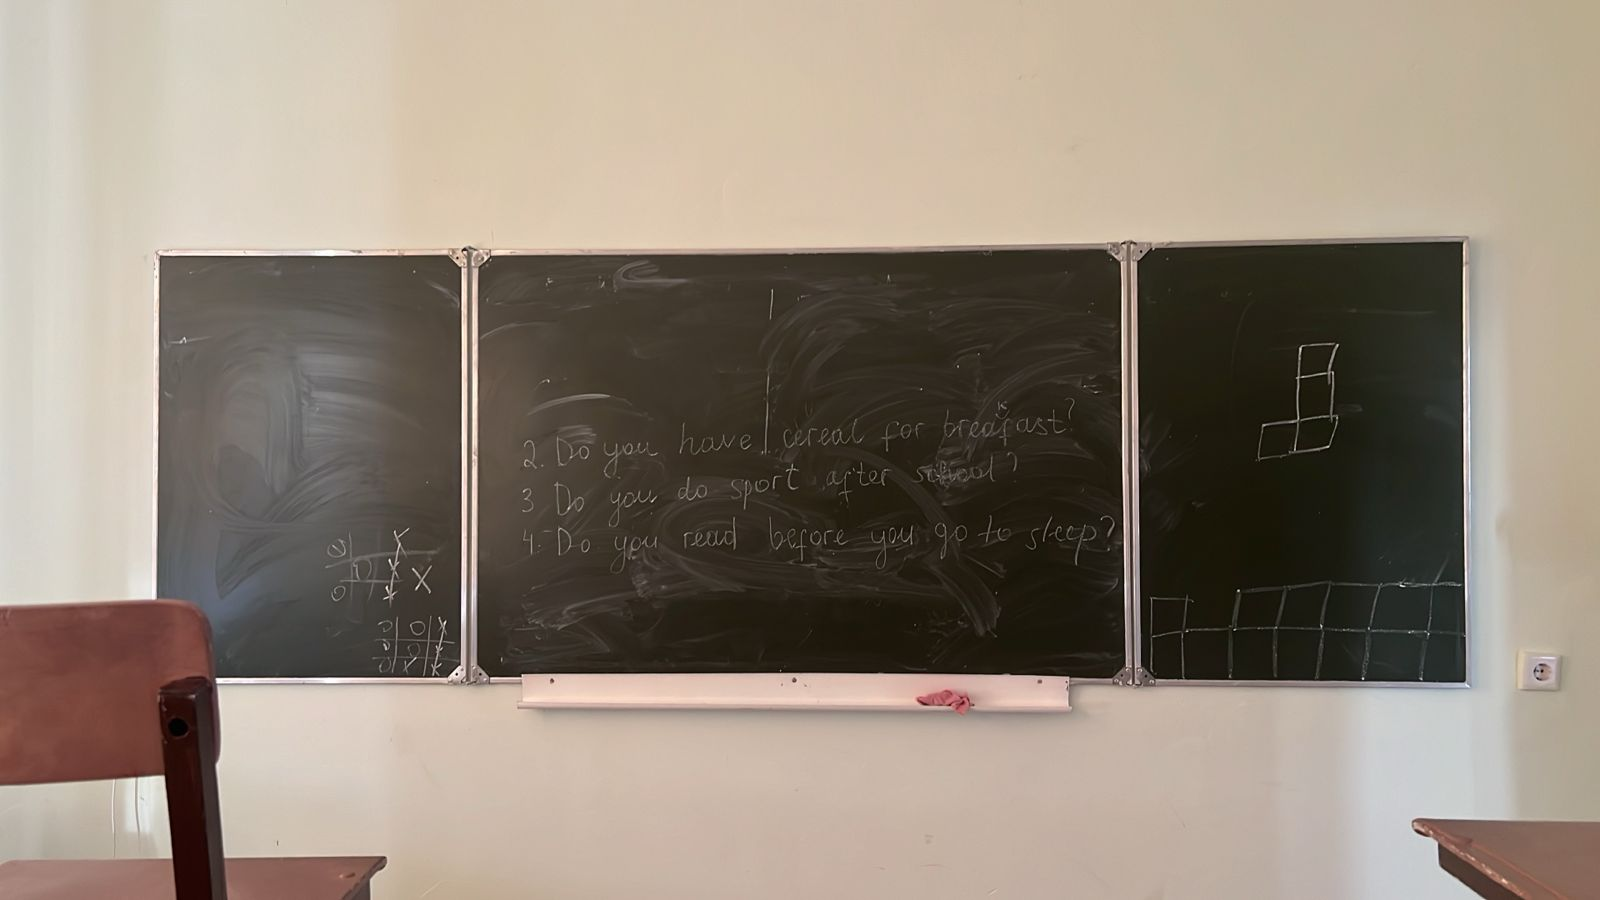 2. Do you have cereal for breakfast?
3 Do you do sport after school?
4. Do you read before you go to sleep?